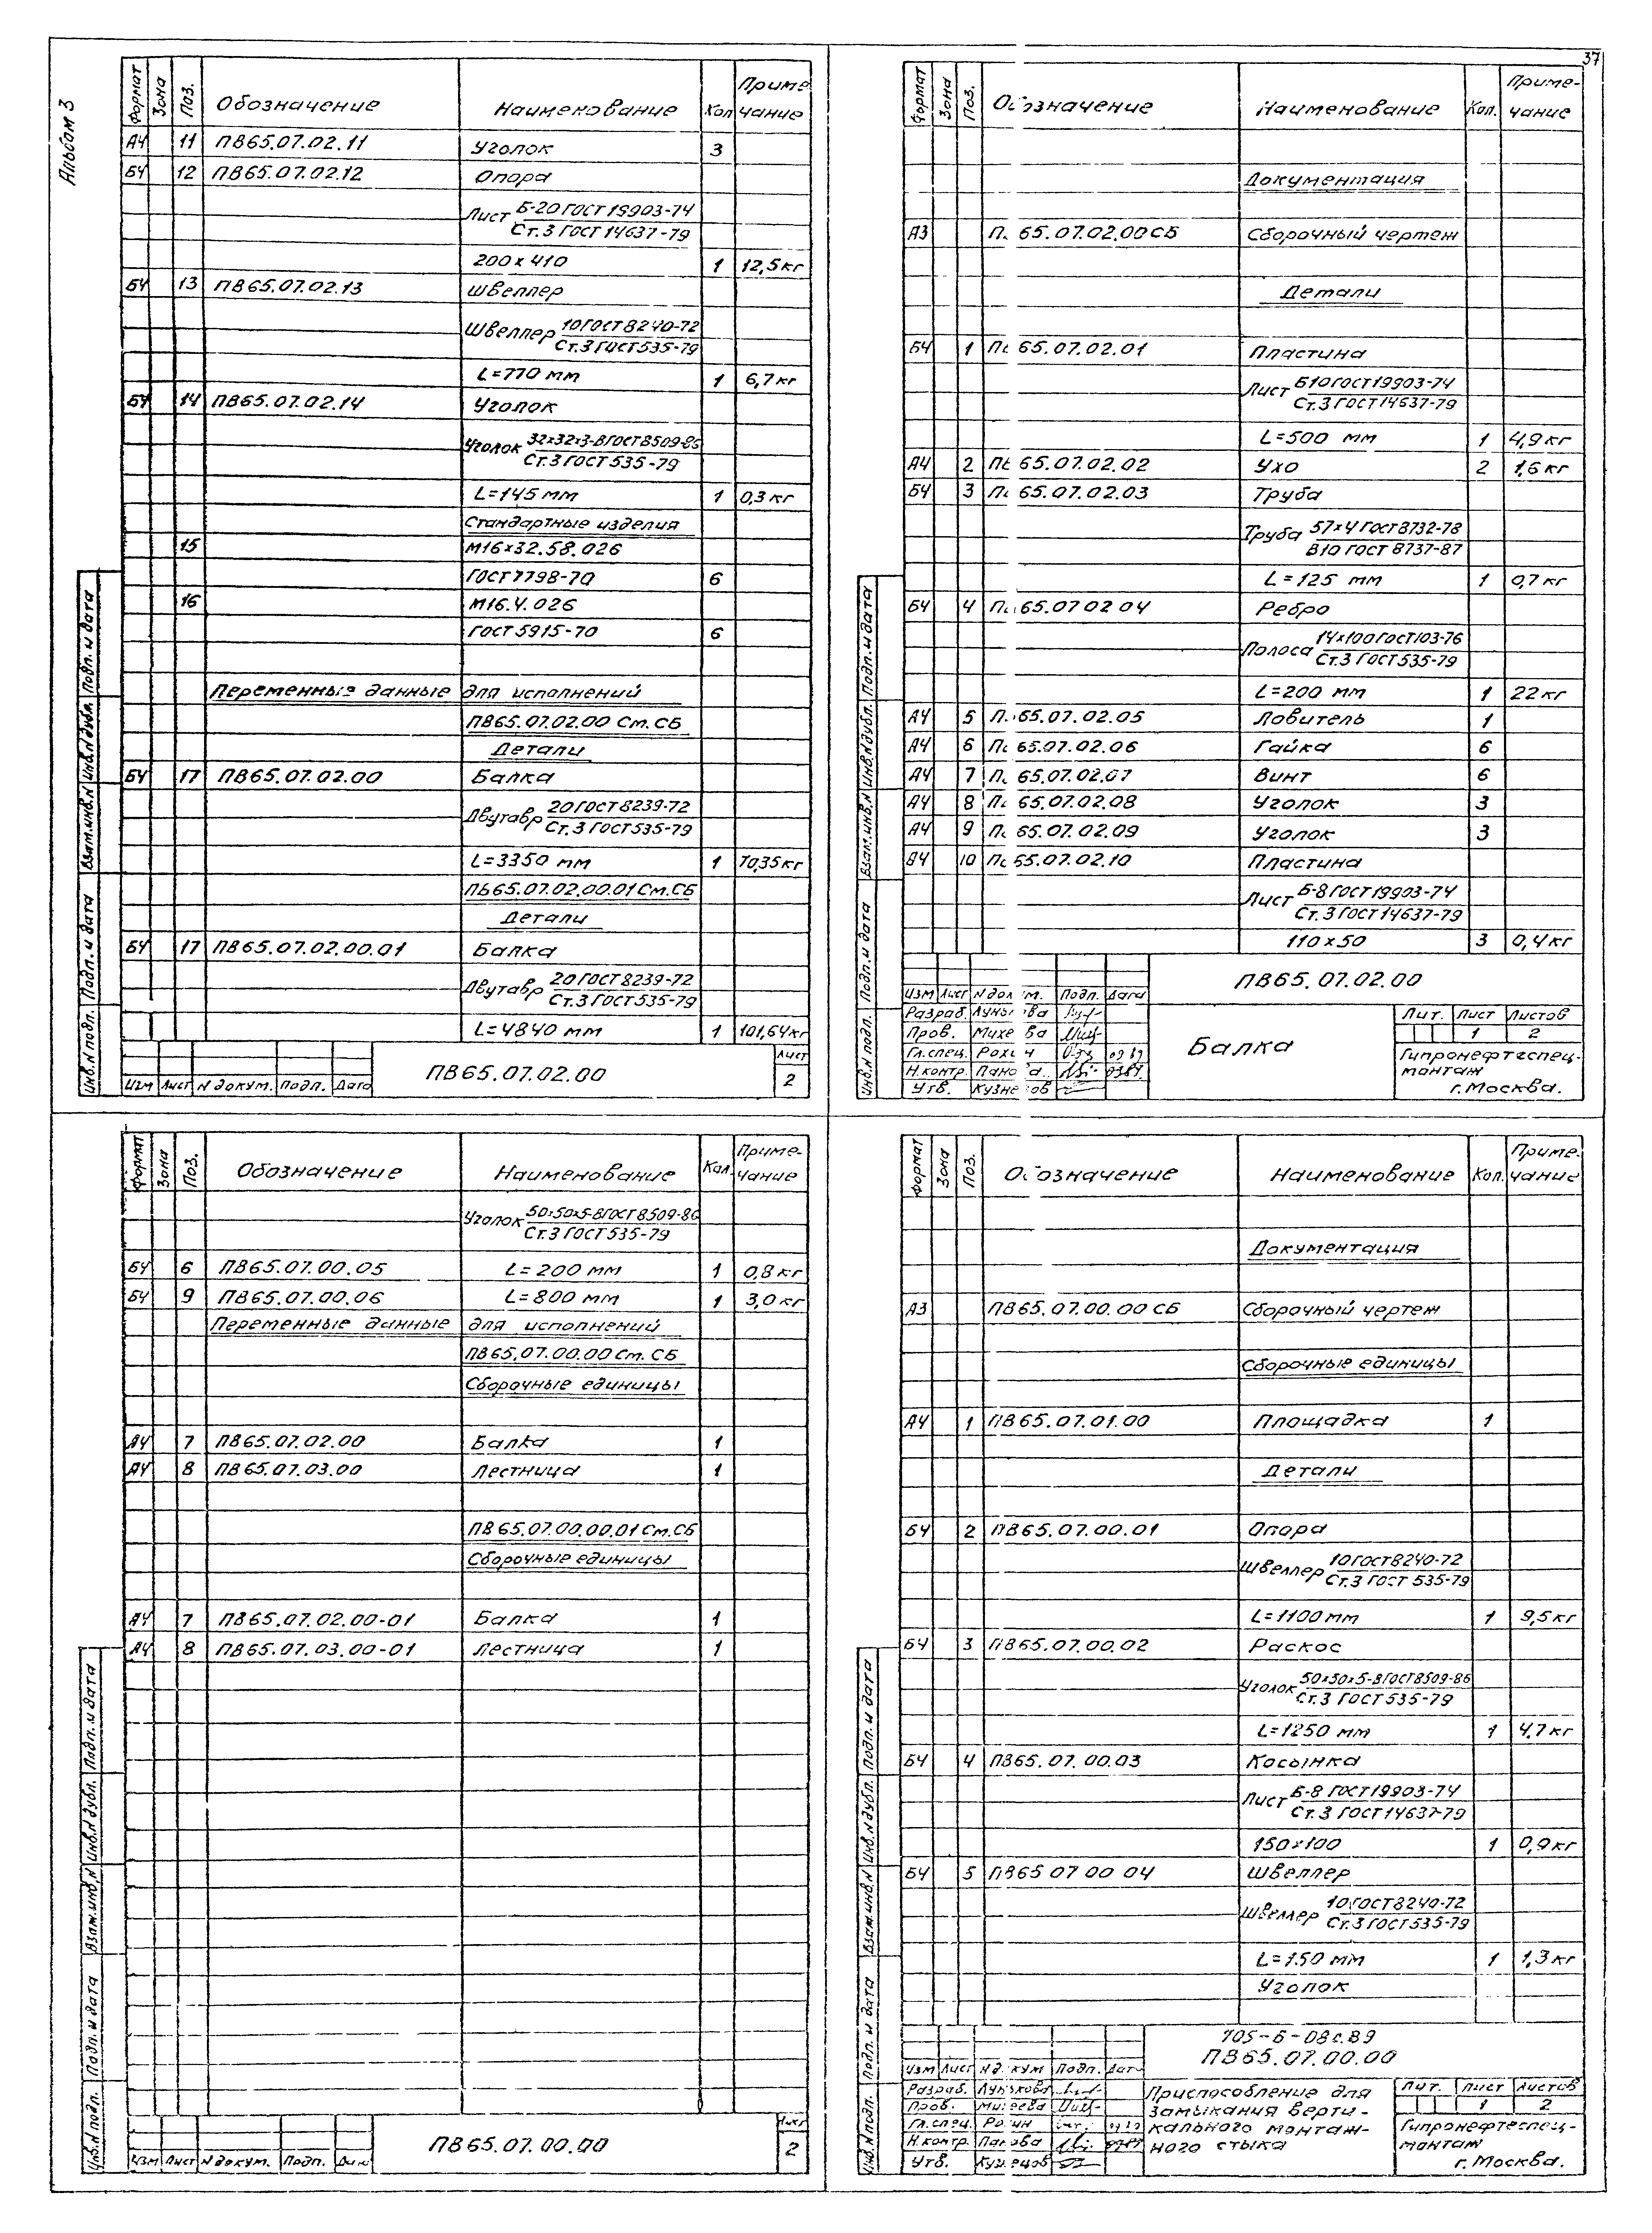 Альбом 3
37
Формат Зона Поз. Обозначение Наименование Кол Приме чание
А4 11 ПВ65.07.02.11 Уголок 3
БЧ 12 ПВ65.07.02.12 Опора
Лист Б-20 ГОСТ 19903-74
Ст.3 ГОСТ 14637-79
200 х 410 1 12,5 кг
БЧ 13 ПВ65.07.02.13 Швеллер
Швеллер 10 ГОСТ 8240-72
Ст.3 ГОСТ 535-79
L=770 мм 1 6,7 кг
БЧ 14 ПВ65.07.02.14 Уголок
Уголок 32х32х3-В ГОСТ 8509-86
Ст.3 ГОСТ 535-79
L=145 мм 1 0,3 кг
Стандартные изделия
15 М16х32.58.026
ГОСТ 7798-70 6
16 М16.4.026
ГОСТ 5915-70 6
Переменные данные для исполнений
ПВ65.07.02.00 См. СБ
Детали
БЧ 17 ПВ65.07.02.00 Балка
Двутавр 20 ГОСТ 8239-72
Ст.3 ГОСТ 535-79
L=3350 мм 1 70,35 кг
ПВ65.07.02.00.01 См. СБ
Детали
БЧ 17 ПВ65.07.02.00.01 Балка
Двутавр 20 ГОСТ 8239-72
Ст.3 ГОСТ 535-79
L=4840 мм 1 101,64 кг
Изм Лист N докум. Подп. Дата ПВ65.07.02.00 Лист 2
Инв.N подл. Подп. и дата Взам.инв.N Инв.N дубл. Подп. и дата
Формат Зона Поз. Обозначение Наименование Кол. Приме- чание
Документация
А3 П 65.07.02.00 СБ Сборочный чертеж
Детали
БЧ 1 ПВ 65.07.02.01 Пластина
Лист Б10 ГОСТ 19903-74
Ст.3 ГОСТ 14637-79
L=500 мм 1 4,9 кг
А4 2 ПВ 65.07.02.02 Ухо 2 1,6 кг
БЧ 3 ПВ 65.07.02.03 Труба
Труба 57х4 ГОСТ 8732-78
В10 ГОСТ 8737-87
L=125 мм 1 0,7 кг
БЧ 4 ПВ 65.07 02 04 Ребро
Полоса 14х100 ГОСТ 103-76
Ст.3 ГОСТ 535-79
L=200 мм 1 22 кг
А4 5 П 65.07.02.05 Ловитель 1
А4 6 ПВ 65.07.02.06 Гайка 6
А4 7 П 65.07.02.07 Винт 6
А4 8 ПВ 65.07.02.08 Уголок 3
А4 9 П 65.07.02.09 Уголок 3
БЧ 10 ПВ 65.07.02.10 Пластина
Лист Б-8 ГОСТ 19903-74
Ст.3 ГОСТ 14637-79
110х50 3 0,4 кг
ПВ65.07.02.00
Изм Лист N докум. Подп. Дата
Разраб.
Пров. Михеева
Гл.спец. Рохин 09 89
Н.контр. Панова
Утв. Кузнецов
Балка
Лит. Лист Листов
1 2
Гипронефтеспец-
монтаж
г. Москва.
Инв.N подл. Подп. и дата Взам.инв.N Инв.N дубл. Подп. и дата
Формат Зона Поз. Обозначение Наименование Кол. Приме- чание
Уголок 50х50х5-В ГОСТ 8509-86
Ст.3 ГОСТ 535-79
БЧ 6 ПВ65.07.00.05 L=200 мм 1 0,8 кг
БЧ 9 ПВ65.07.00.06 L=800 мм 1 3,0 кг
Переменные данные для исполнений
ПВ65.07.00.00 См. СБ
Сборочные единицы
А4 7 ПВ65.07.02.00 Балка 1
А4 8 ПВ65.07.03.00 Лестница 1
ПВ65.07.00.00.01 См. СБ
Сборочные единицы
А4 7 ПВ65.07.02.00-01 Балка 1
А4 8 ПВ65.07.03.00-01 Лестница 1
Изм Лист N докум. Подп. Дата ПВ65.07.00.00 Лист 2
Инв.N подл. Подп. и дата Взам.инв.N Инв.N дубл. Подп. и дата
Формат Зона Поз. Обозначение Наименование Кол. Приме- чание
Документация
А3 ПВ65.07.00.00 СБ Сборочный чертеж
Сборочные единицы
А4 1 ПВ65.07.01.00 Площадка 1
Детали
БЧ 2 ПВ65.07.00.01 Опора
Швеллер 10 ГОСТ 8240-72
Ст.3 ГОСТ 535-79
L=1100 мм 1 9,5 кг
БЧ 3 ПВ65.07.00.02 Раскос
Уголок 50х50х5-В ГОСТ 8509-86
Ст.3 ГОСТ 535-79
L=1250 мм 1 4,7 кг
БЧ 4 ПВ65.07.00.03 Косынка
Лист Б-8 ГОСТ 19903-74
Ст.3 ГОСТ 14637-79
150х100 1 0,9 кг
БЧ 5 ПВ65 07 00 04 Швеллер
Швеллер 10 ГОСТ 8240-72
Ст.3 ГОСТ 535-79
L=150 мм 1 1,3 кг
Уголок
705-6-08с.89
ПВ65.07.00.00
Изм Лист N докум Подп. Дата
Разраб.
Пров. Михеева
Гл.спец. Рохин
Н.контр. Панова
Утв. Кузнецов
Приспособление для
замыкания верти-
кального монтаж-
ного стыка
Лит. Лист Листов
1 2
Гипронефтеспец-
монтаж
г. Москва.
Инв.N подл. Подп. и дата Взам.инв.N Инв.N дубл. Подп. и дата